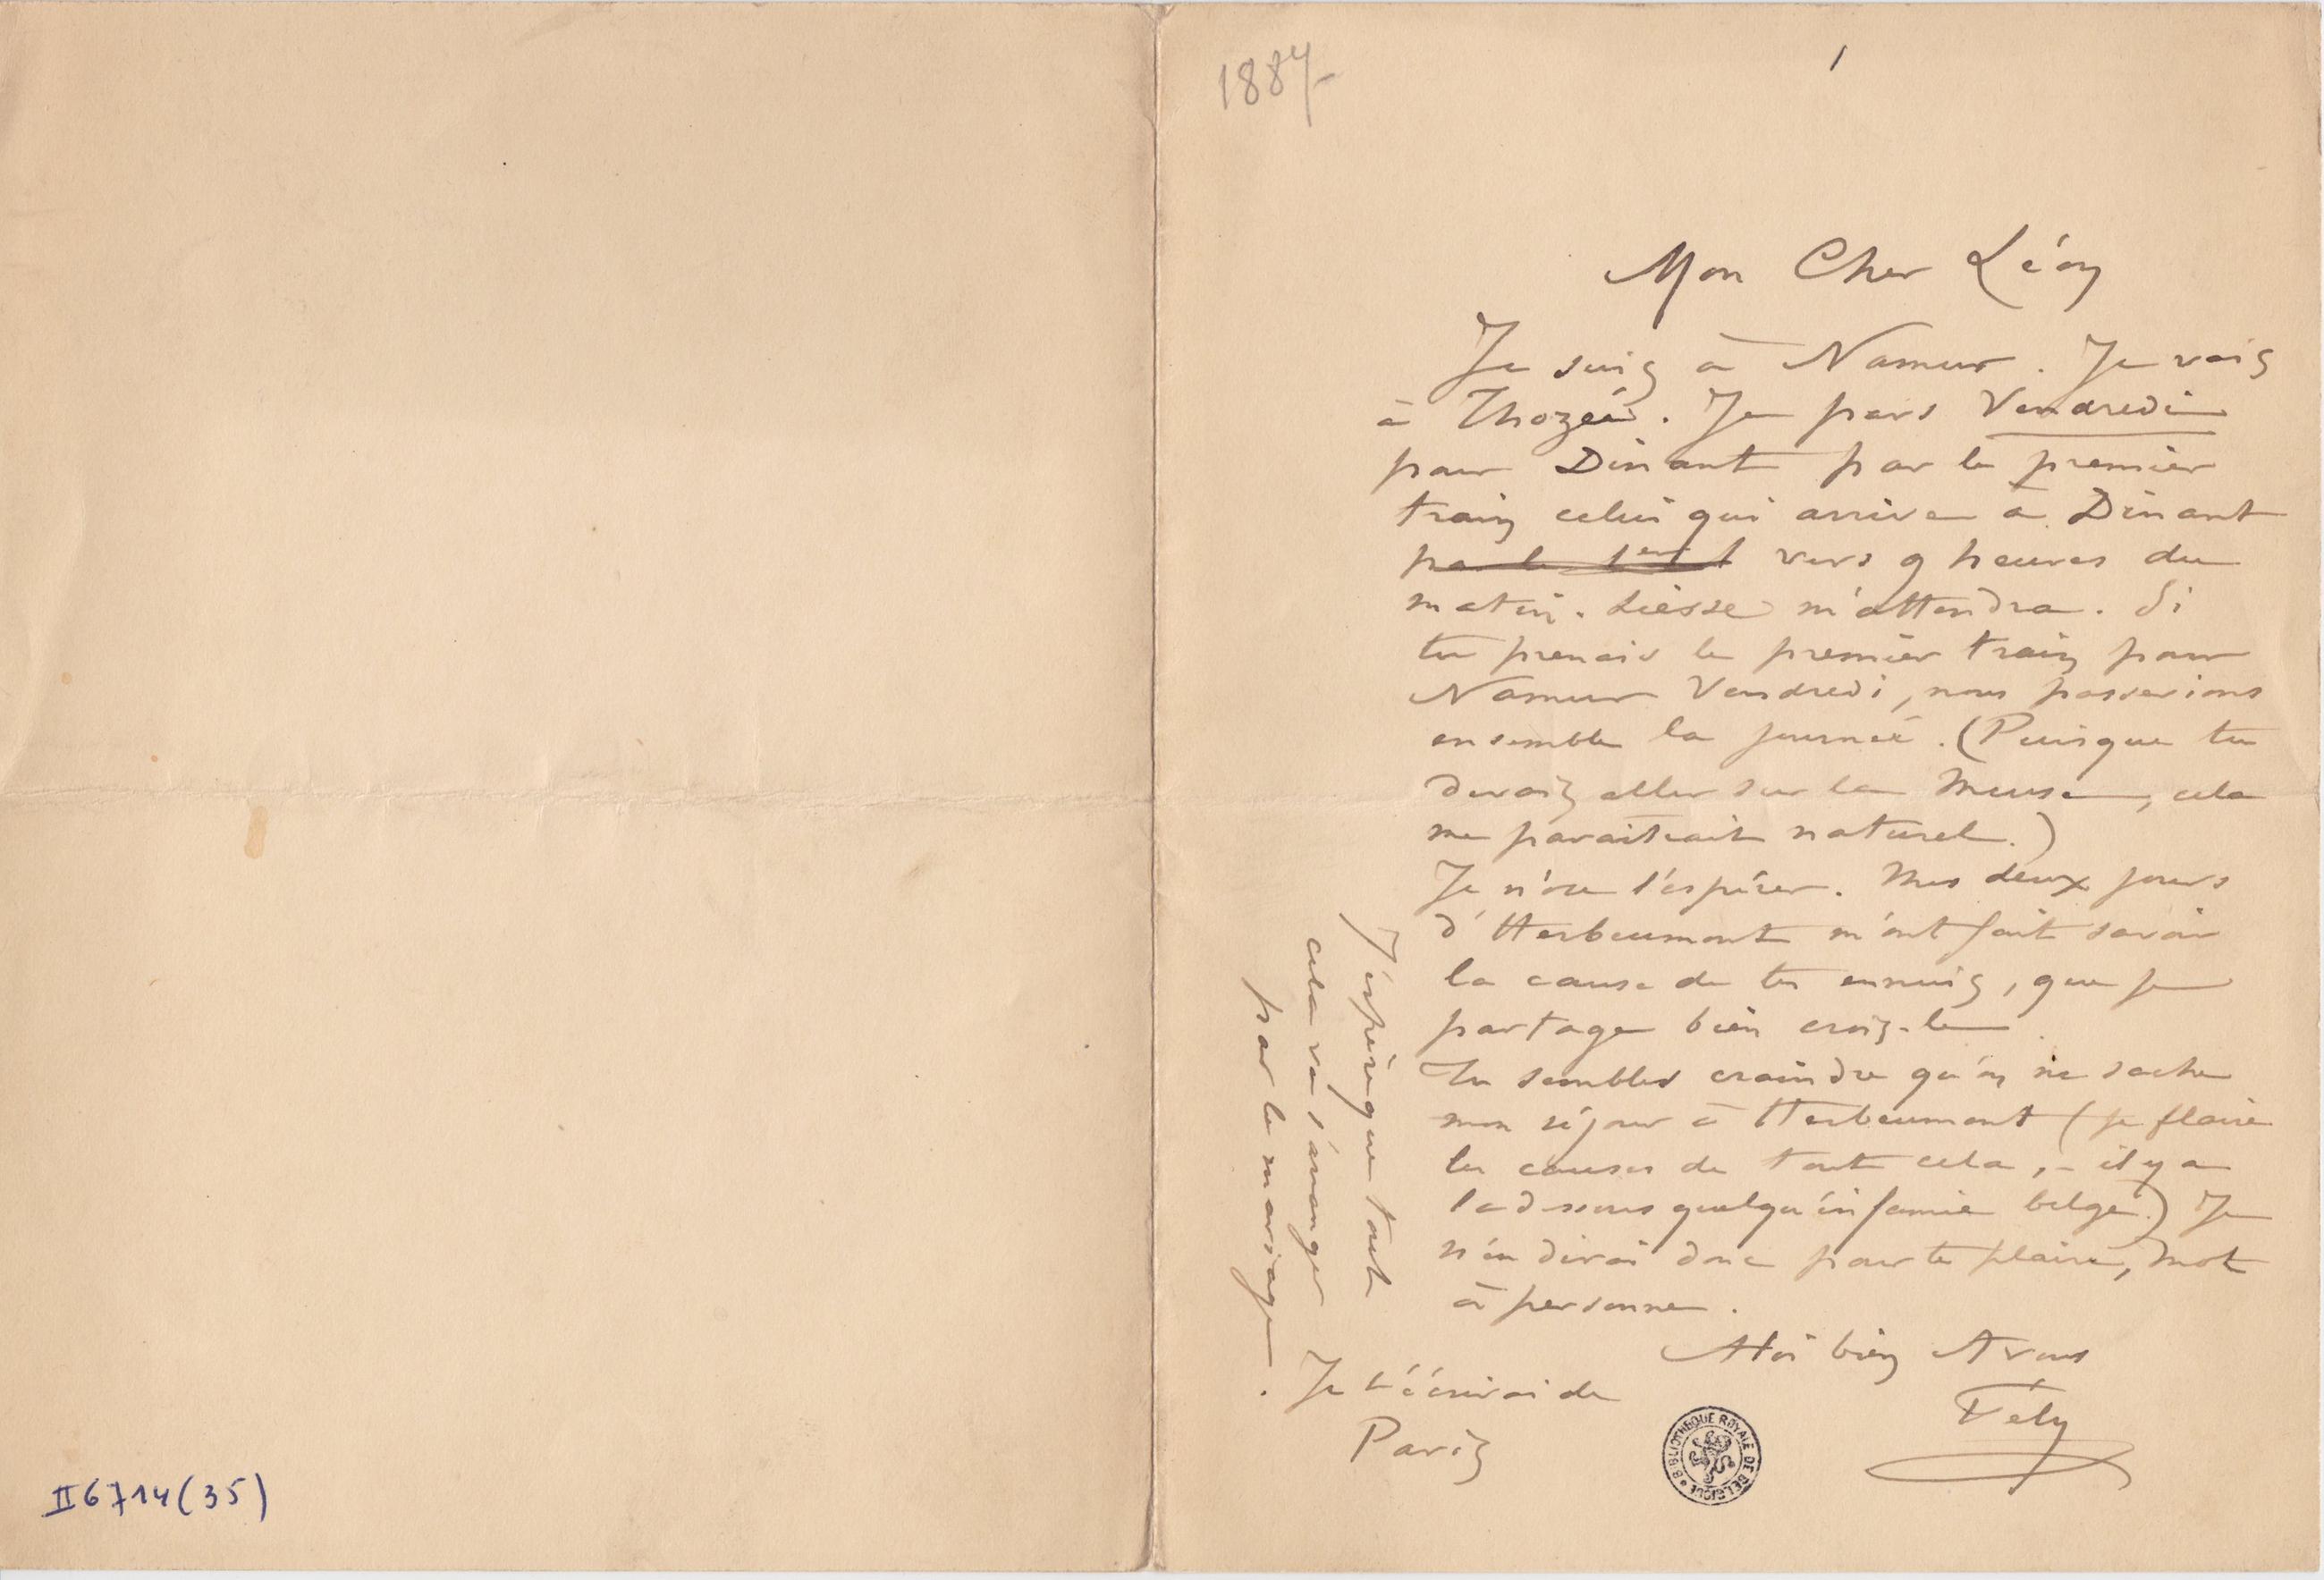 1887-
1
Mon Cher Léon
Je suis à Namur. Je vais
à Thozée. Je pars Vendredi
pour Dinant par le premier
train celui qui arrive à Dinant
par le 1er t vers 9 heures du
matin. Liesse m'attendra. Si
tu prenais le premier train pour
Namur Vendredi, nous passerions
ensemble la journée. (Puisque tu
devais aller sur la Meuse, cela
me paraitrait naturel.)
Je n'ose l'espérer. Mes deux jours
d'Herbeumont m'ont fait savoir
la cause de tes ennuis, que je
partage bien crois-le
Tu sembles craindre qu'on ne sache
mon séjour à Herbeumont (je flaire
les causes de tout cela, - il y a
la dessous quelqu'infamie belge.) Je
n'en dirai donc pour te plaire, mot
à personne.
A toi bien A vous
Fély
J'espère que tout
cela va s'arranger
par le mariage.
Je t'écrirai de
Paris
BIBLIOTHEQUE ROYALE DE BELGIQUE
II 6714 (35)